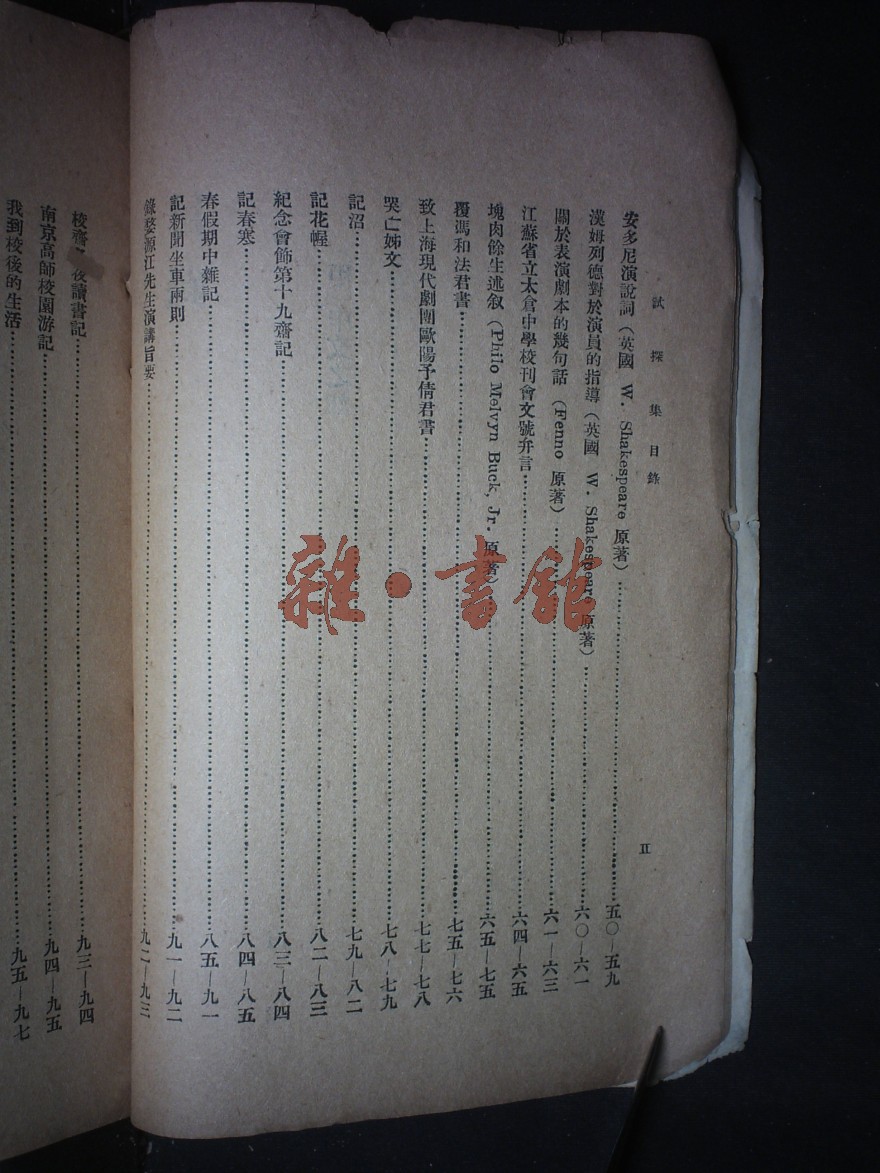 試探集目錄
II
安多尼演說詞(英國 W. Shakespeare 原著)……五〇—五九
漢姆列德對於演員的指導(英國 W. Shakespeare 原著)……六〇—六一
關於表演劇本的幾句話(Fenno 原著)……六一—六三
江蘇省立太倉中學校刊會文號弁言……六四—六五
塊肉餘生述叙(Philo Melvyn Buck, Jr. 原著)……六五—七五
覆馮和法君書……七五—七六
致上海現代劇團歐陽予倩君書……七七—七八
哭亡姊文……七八—七九
記沼……七九—八二
記花幄……八二—八三
紀念會飾第十九齋記……八三—八四
記春寒……八四—八五
春假期中雜記……八五—九一
記新聞坐車兩則……九一—九二
錄婺源江先生演講旨要……九二—九三
校齋 後讀書記……九三—九四
南京高師校園游記……九四—九五
我到校後的生活……九五—九七
雜·書館